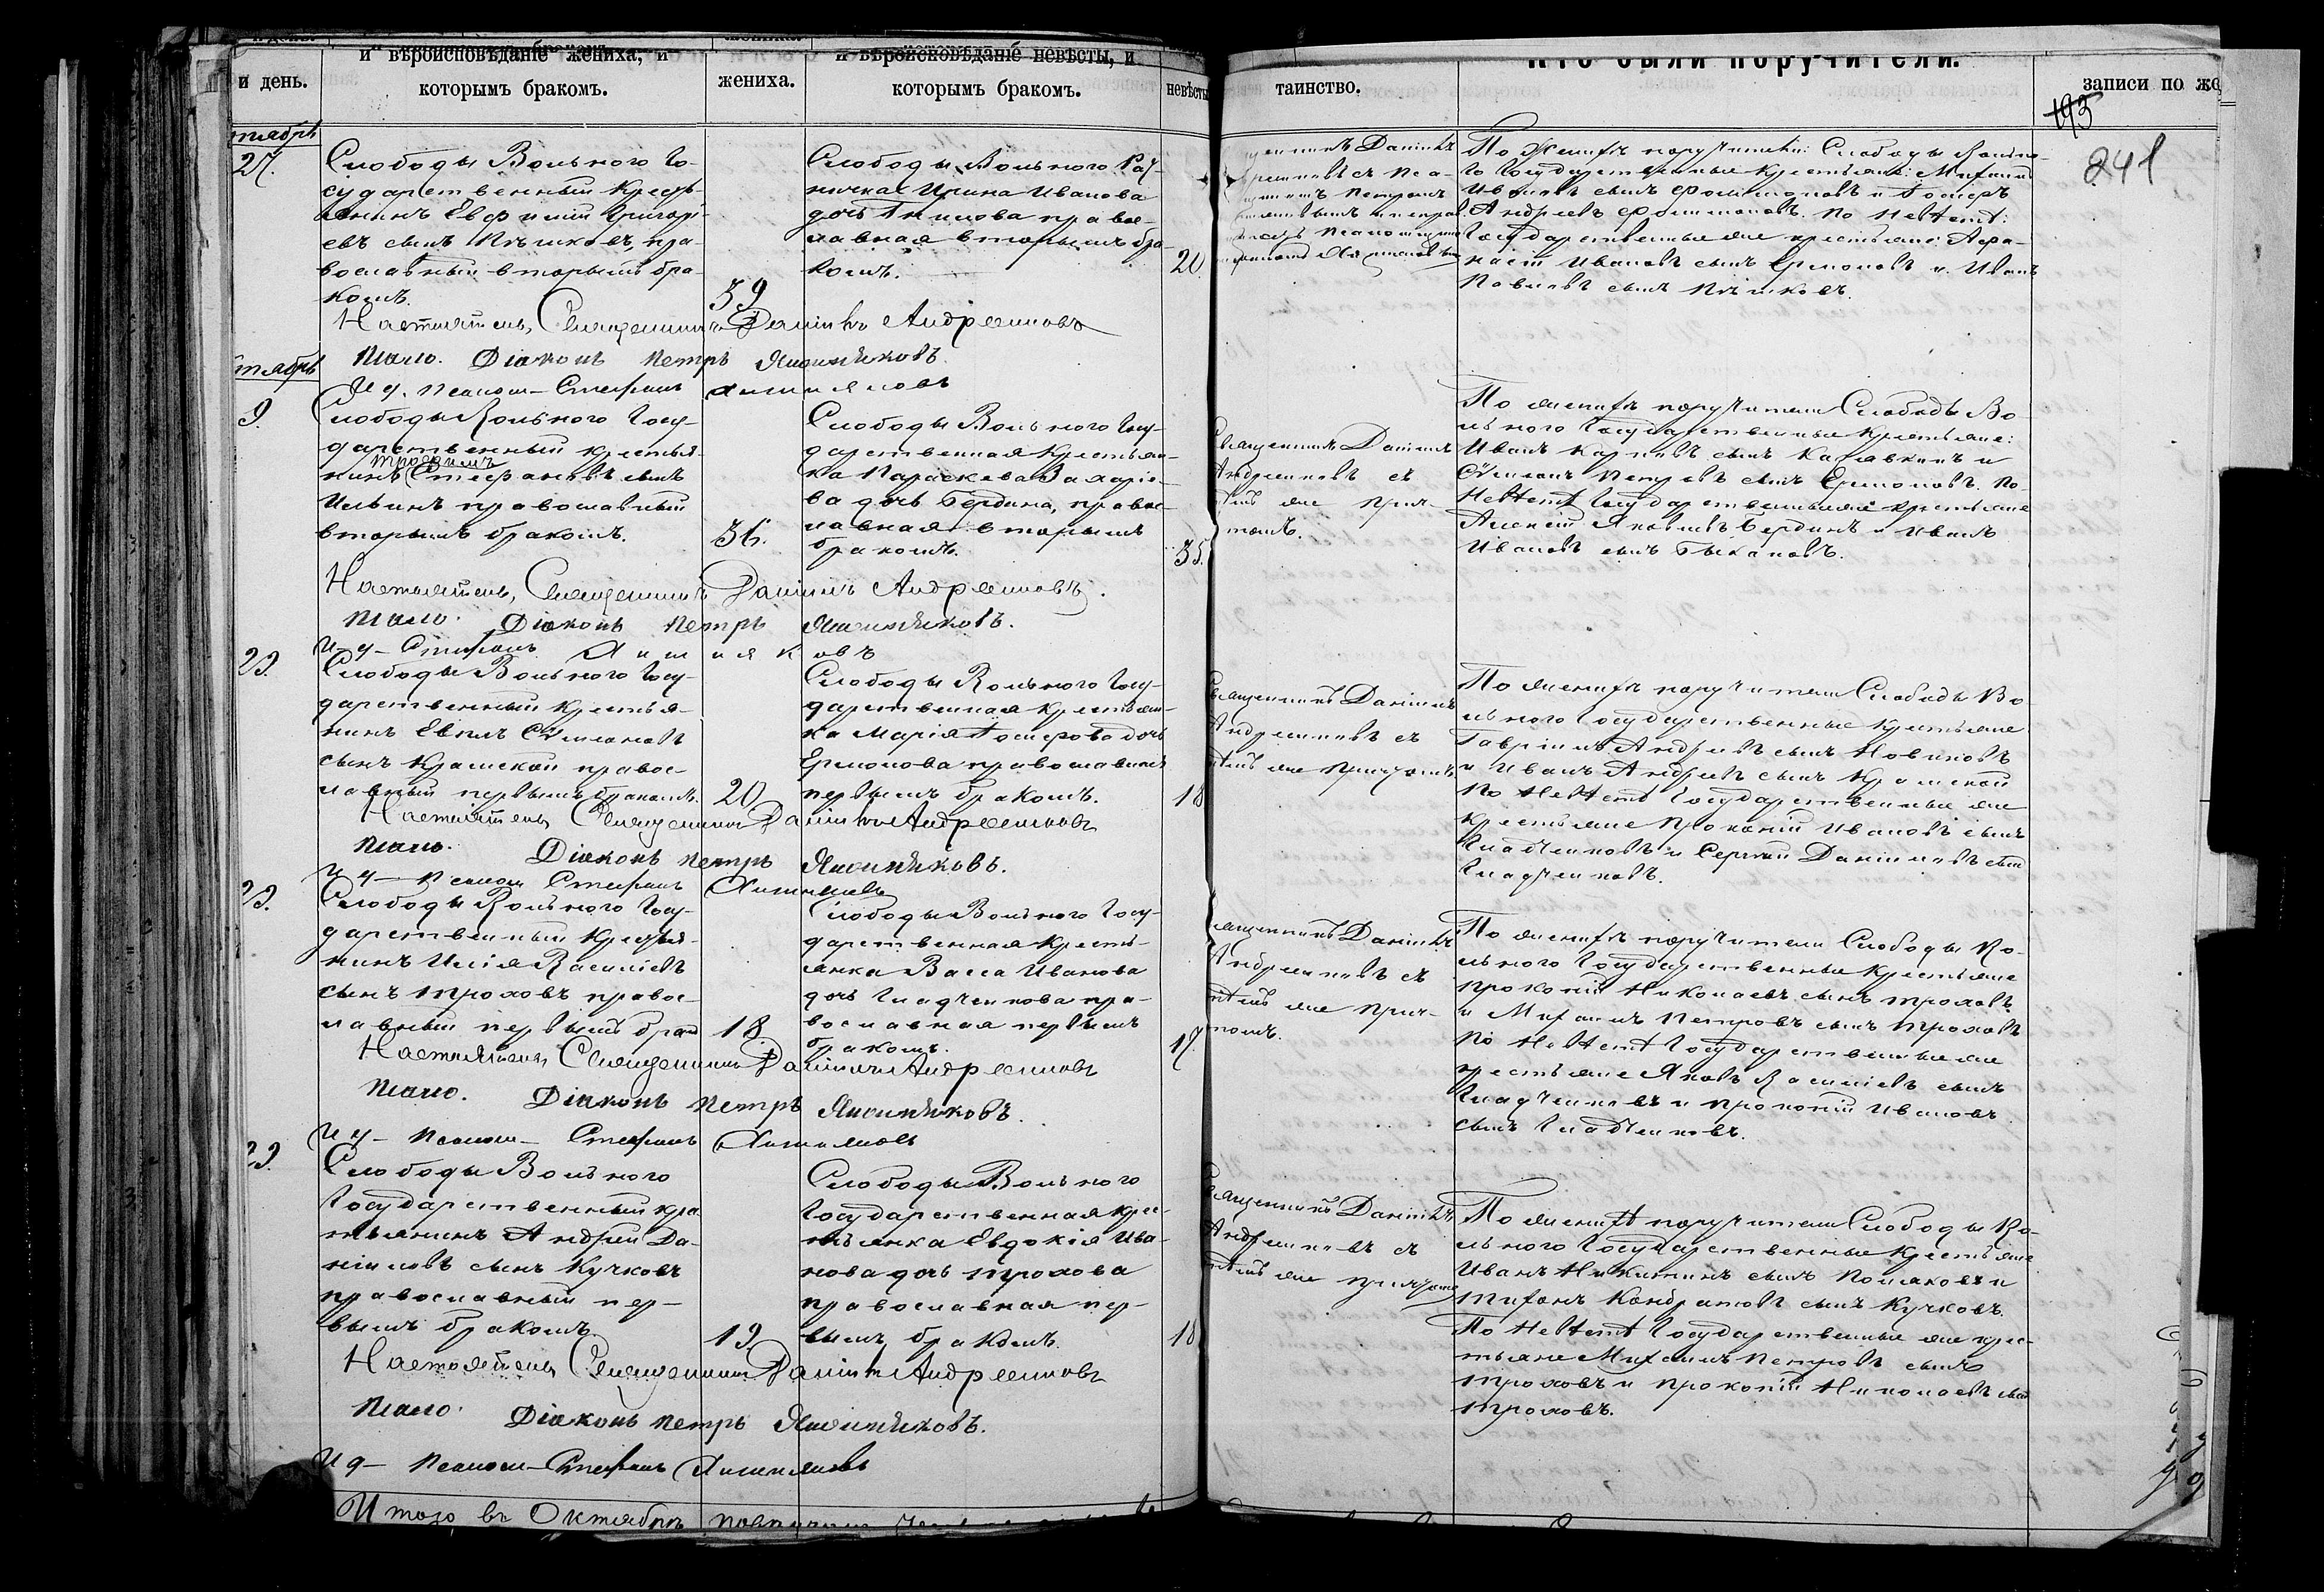 и вѣроисповѣданіе жениха, и
и вѣроисповѣданіе невѣсты, и
Кто были поручители.
и день.
которымъ бракомъ.
жениха.
которымъ бракомъ.
невѣсты
таинство.
записи по же
193
241
тябрь
27.
Слободы Вольного Го-
сударственный Кресть-
янинъ Евфимій Григорі-
евъ сынъ Пѣшковъ, пра-
вославный вторымъ бра-
комъ.
39
Слободы Вольного
Ирина Иванова
дочь православ-
лавная вторымъ бра-
комъ.
20
По женихѣ поручители: Слободы Вольно-
го Государственные Крестьяне: Михаилъ
Ивановъ сынъ Филимоновъ и
Андреевъ Филимоновъ. По Невѣстѣ:
Государственные же крестьяне: Афа-
насій Ивановъ сынъ Ермоловъ и Иванъ
сынъ Пѣшковъ.
Настоятель, Священникъ Даніилъ Андреенковъ
Діаконъ Петръ
И д. Псалом- Стефанъ
тябрь
9.
Слободы Вольного Госу-
дарственный крестья-
трофимъ
нинъ Стефановъ сынъ
Ильинъ православный
вторымъ бракомъ.
36.
Слободы Вольного Госу-
дарственная Крестьян-
ка Параскева Захарiе-
ва дочь Бердина, правос-
лавная вторымъ
бракомъ.
35.
Священникъ Даніилъ
Андреенковъ съ
тѣмъ же прич-
томъ.
По женихѣ поручители Слободы Во-
льного Государственные Крестьяне:
Иванъ Карповъ сынъ и
Стефанъ Петровъ сынъ Ермоловъ. По
Невѣстѣ Государственные же крестьяне
Алексій Яковлевъ Бердинъ и Иванъ
Ивановъ сынъ
Настоятель, Священникъ Даніилъ Андреенковъ.
Діаконъ Петръ
И д - Стефанъ
29.
Слободы Вольного Госу-
дарственный крестья-
нинъ Стефановъ
сынъ Крамской правос-
лавный первымъ бракомъ.
20
Слободы Вольного Госу-
дарственная крестьян-
ка Марія дочь
Ермолова православная
первымъ бракомъ.
18
Священникъ Даніилъ
Андреенковъ съ
тѣмъ же причтомъ
По женихѣ поручители Слободы Во
льного Государственные Крестьяне
Гавріилъ Андреевъ сынъ Новиковъ
и Иванъ Андреевъ сынъ Крамской
По Невѣстѣ Государственные же
крестьяне Прокопій Ивановъ сынъ
Гладченковъ и Сергѣй Даніиловъ сынъ
Гладченковъ.
Настоятель Священникъ Даніилъ Андреенковъ
Діаконъ Петръ
И д - Псалом Стефанъ
29.
Слободы Вольного Госу-
дарственный Крестья-
нинъ Илія Василіевъ
сынъ Троховъ правос-
лавный первымъ брак
18
Слободы Вольного Госу-
дарственная Кресть-
янка Васса Иванова
дочь Гладченкова пра-
вославная первымъ
бракомъ.
17.
Священникъ Даніилъ
Андреенковъ съ
тѣмъ же прич-
томъ.
По женихѣ поручители Слободы Во-
льного Государственные Крестьяне
Прокопій Николаевъ сынъ Троховъ
и Михаилъ Петровъ сынъ Троховъ
По Невѣстѣ Государственные же
крестьяне Яковъ Василіевъ сынъ
Гладченковъ и Прокопій Ивановъ
сынъ Гладченковъ.
Настоятель, Священникъ Даніилъ Андреенковъ
Діаконъ Петръ
И д - Псалом- Стефанъ
29.
Слободы Вольного
Государственный кре
стьянинъ Андрей Да-
ніиловъ сынъ Кучковъ
православный пер-
вымъ бракомъ
19.
Слободы Вольного
Государственная крес-
тьянка Евдокія Ива-
нова дочь Трохова
православная пер-
вымъ бракомъ.
18
Священникъ Даніилъ
Андреенковъ съ
тѣмъ же причтомъ
По женихѣ поручители Слободы Во-
льного Государственные Крестьяне
Иванъ Никитинъ сынъ Поляковъ и
Тихонъ Кондратовъ сынъ Кучковъ.
По Невѣстѣ Государственные же крес-
тьяне Михаилъ Петровъ сынъ
Троховъ и Прокопій Николаевъ сынъ
Троховъ.
Настоятель Священникъ Даніилъ Андреенковъ
Діаконъ Петръ
И д - Псалом- Стефанъ
Итого въ Октябрѣ